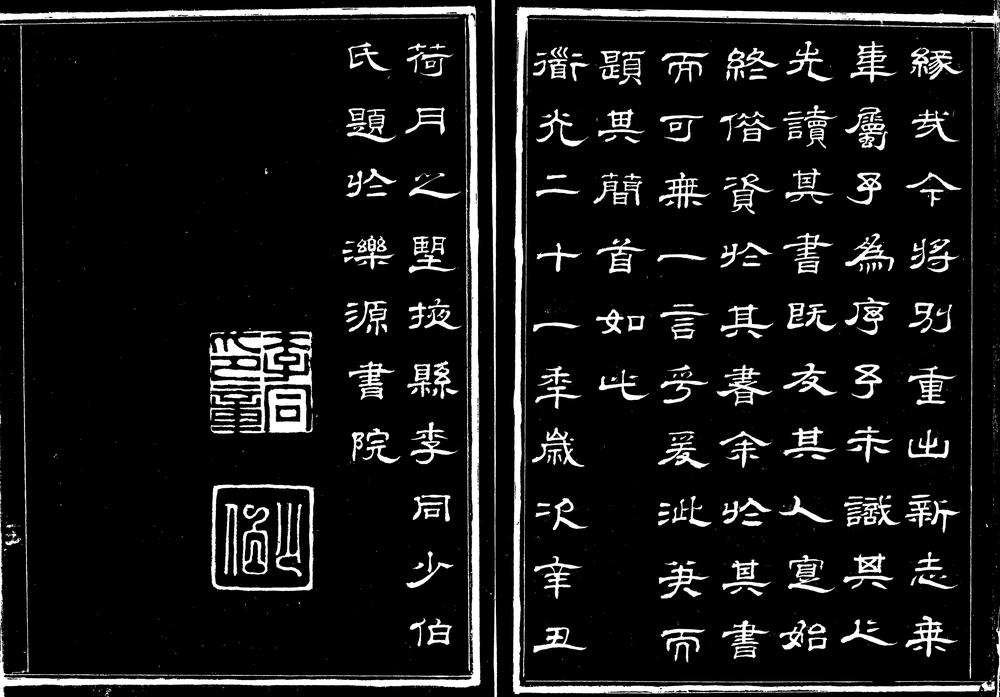 緣哉今將別重出新志乘
事屬予為序予未識其人
先讀其書既友其人寔始
終借資於其書余於其書
而可無一言乎爰泚筆而
題其簡首如此
道光二十一年歲次辛丑
荷月之望掖縣李同少伯
氏題於濼源書院
李同印章
少伯